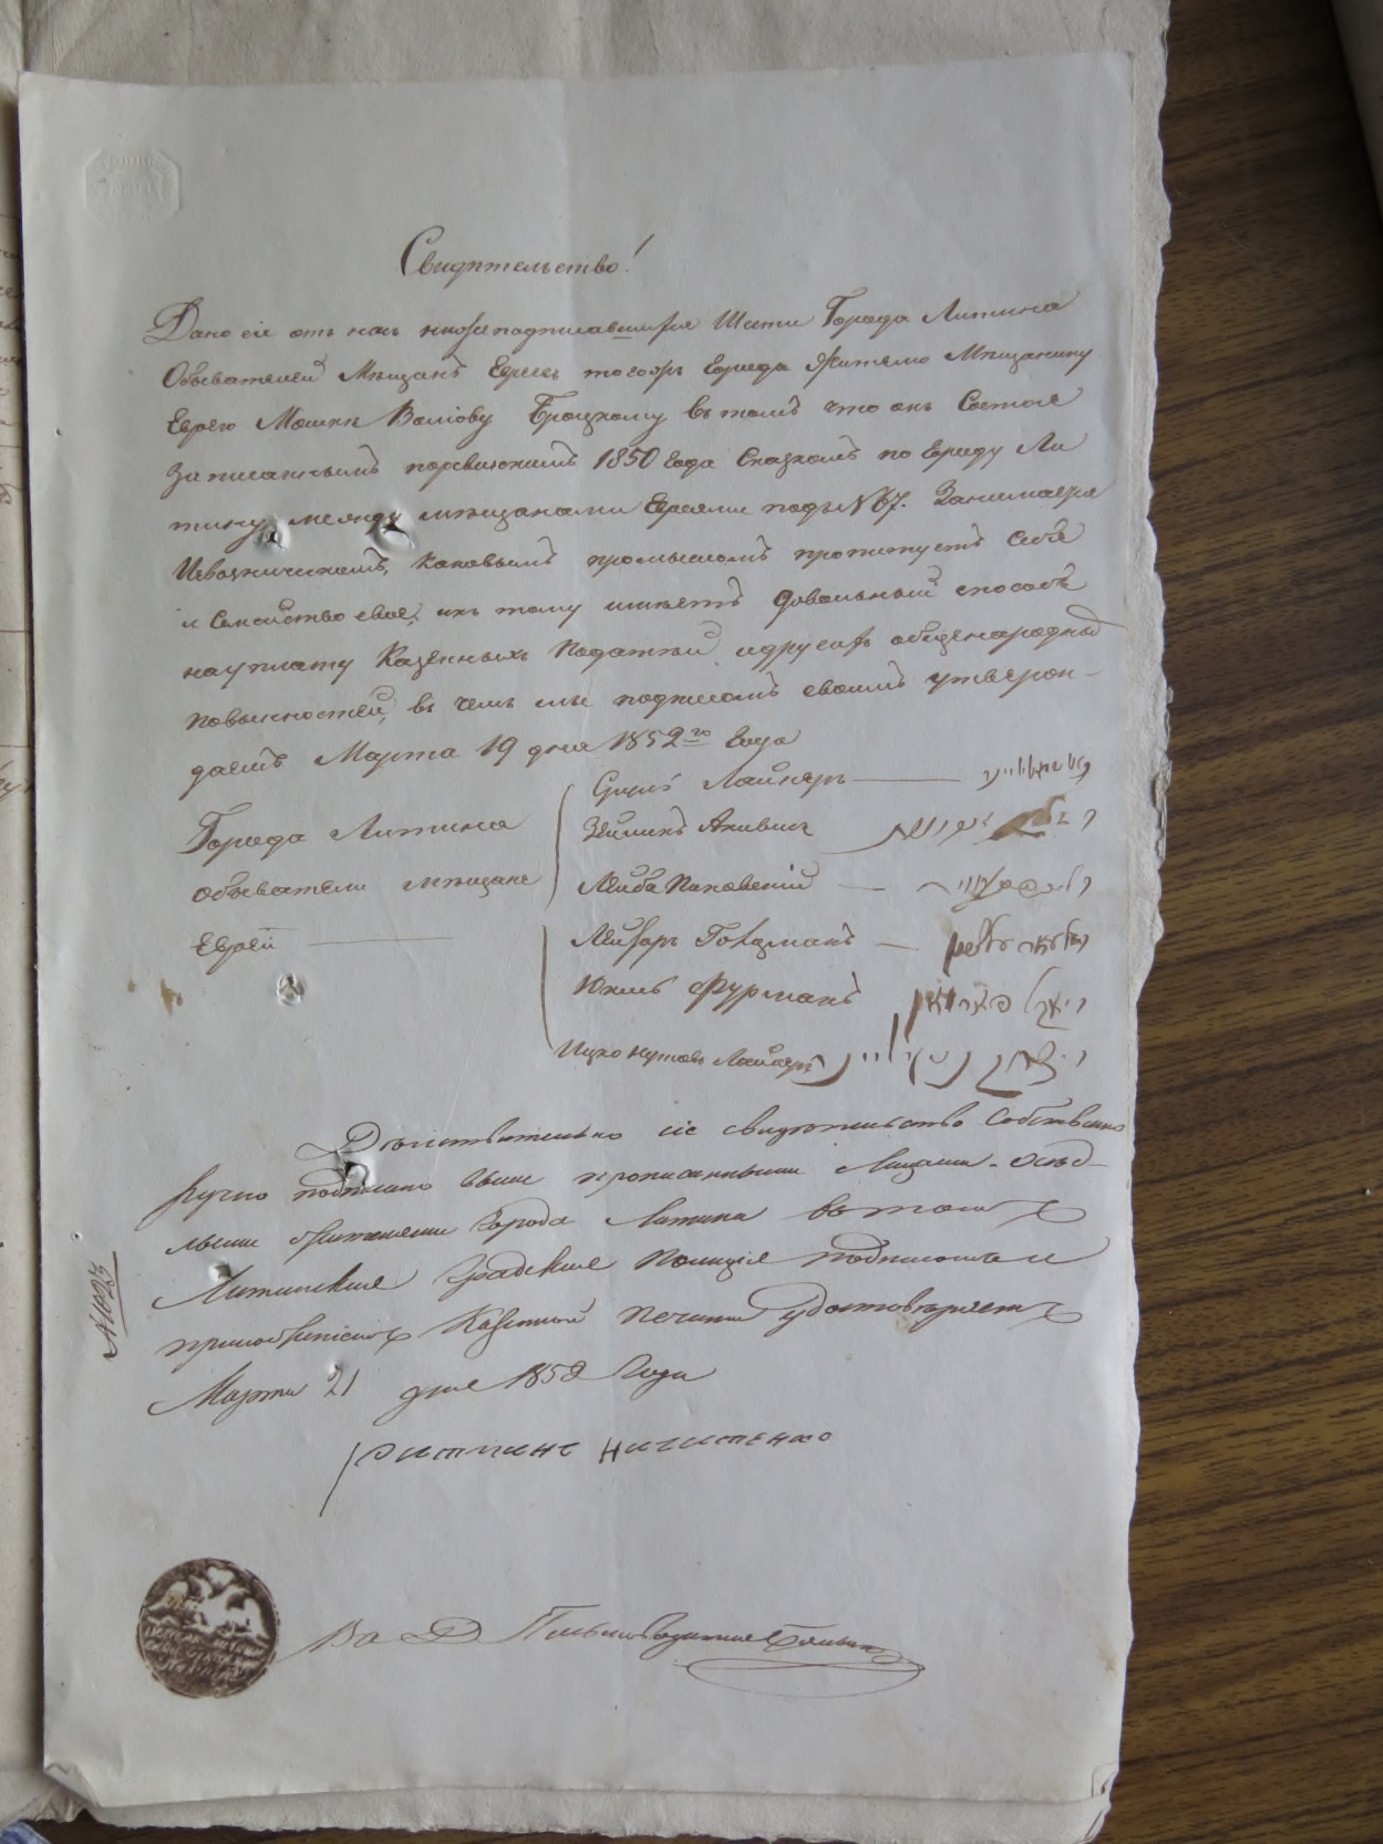 Свидѣтельство!
Дано сіе отъ насъ нижеподписавшихся Шести Города Литина
Обывателей Мѣщанъ Евреевъ тогожъ Города Жителю Мѣщанину
Еврею Мошкѣ Волiову Троцкому въ томъ что онъ Состоя
Записаннымъ поревизскимъ 1850 Года Сказкамъ по Городу Ли
тину между мѣщанами Евреями подъ N 67. Занимается
Извозничествомъ, Каковымъ промысломъ пропитуетъ Себя
и Семейство свое, икъ тому имѣетъ Довольный способъ
на уплату Казенныхъ Податей идругихъ общенародныхъ
Повинностей, въ чемъ мы подписомъ своимъ утвержон-
даемъ Марта 19 дня 1852го Года
Города Литина
обыватели мѣщане
Еврей
Лайнеръ
Зейликъ Акивис
Лейба Пиковскій
Лейзоръ Гольцманъ
Юкель Фурманъ יאקל פורמאן
Ицко Нутовъ Лайнеръ
Дѣйствительно сіе свидѣтельство Собственно
ручно подписано выше прописанными Лицами. осѣд-
лыми Жителями Города Литина въ томъ
Литинская Градская Полиція подписомъ и
приложеніемъ Казенной Печати удостовѣряетъ
Марта 21 дня 1852 Года
Ничипенко
N 1023
За Письмоводителя